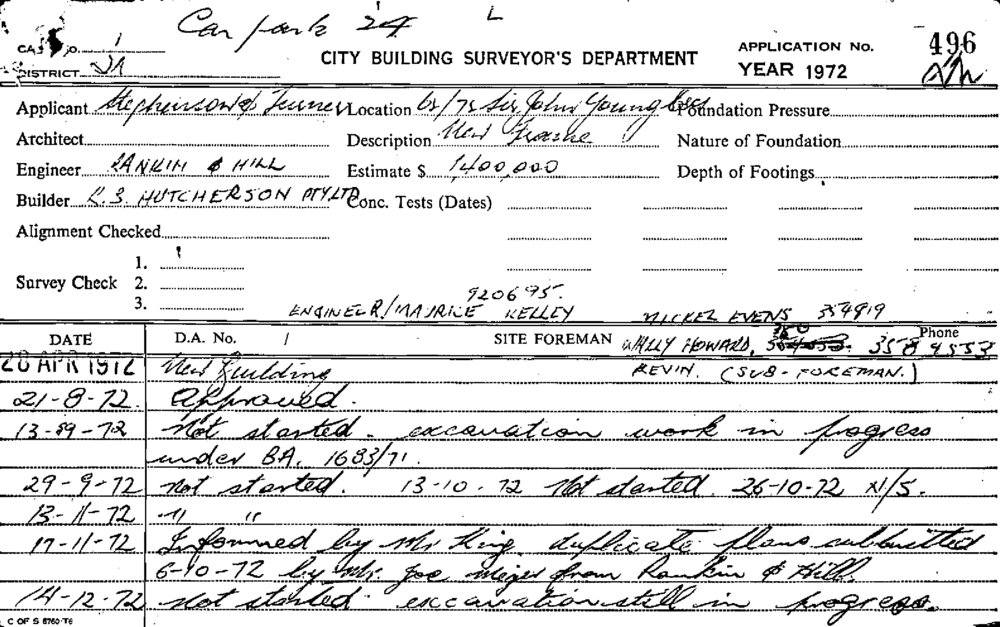 Car park 24 L
CARD No. 1
DISTRICT
CITY BUILDING SURVEYOR'S DEPARTMENT
APPLICATION No. 496
YEAR 1972
Applicant Stephenson & Turner Location 65/75 Sir John Young Cres Foundation Pressure
Architect Description New Nature of Foundation
Engineer RANKIN & HILL Estimate $ 1,400,000 Depth of Footings
Builder K.S. HUTCHERSON PTY LTD Conc. Tests (Dates)
Alignment Checked
1.
Survey Check 2.
3.
920695.
ENGINEER/MAURICE KELLEY MICKEL EVENS 354919
DATE D.A. No. / SITE FOREMAN WALLY HOWARD, Phone 358 9553
28 APR 1972 New Building KEVIN. (SUB-FOREMAN.)
21-8-72. Approved.
13-9-72 Not started - excavation work in progress
under BA. 1683/71.
29-9-72 Not started. 13-10-72 Not started. 26-10-72 N/S.
13-11-72 " "
17-11-72 Informed by Mr King duplicate plans submitted
6-10-72 by Mr. Joe from Rankin & Hill.
14-12-72 Not started. excavation still in progress.
C OF S 8760-T6